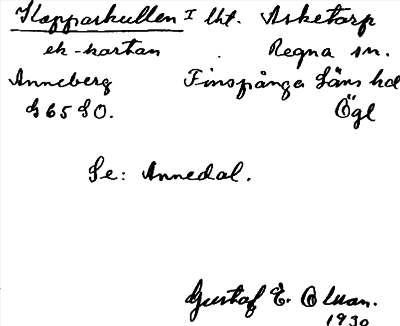 Klapparkullen I lht. Asketorp
ek-kartan Regna sn.
Anneberg Finspånga Läns hd
G 65 SO. Ögl
Se: Annedal.
Gustaf E. Olsson.
1930